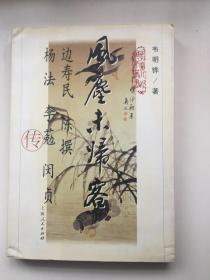 韦明铧/著
风尘未归客
边寿民 陈撰
杨法 李葂 闵贞
传
上海人民出版社